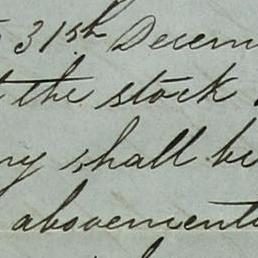 31st Decem
the stock
ny shall be
abovement